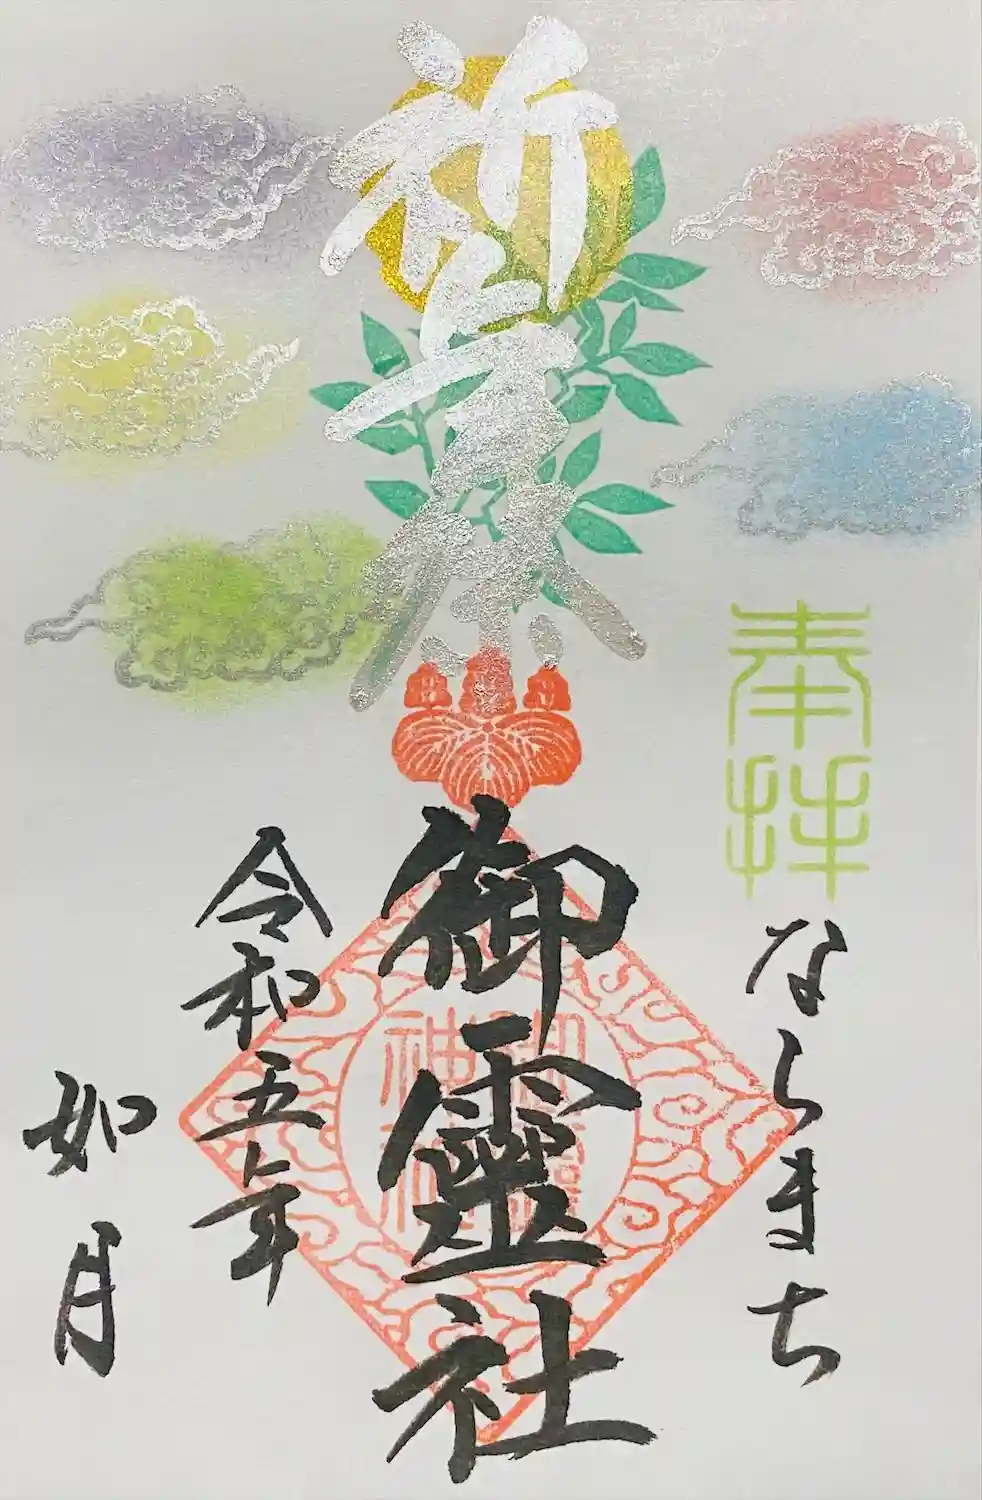 奉拝
ならまち
祈年祭
御靈社
令和五年
如月